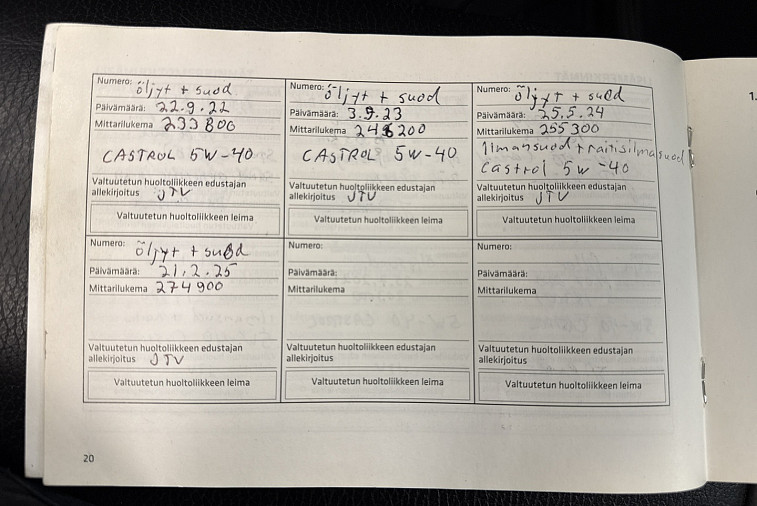 Numero: öljyt + suod
Päivämäärä: 22.9.22
Mittarilukema 233800
CASTROL 5W-40
Valtuutetun huoltoliikkeen edustajan
allekirjoitus JTV
Valtuutetun huoltoliikkeen leima
Numero: öljyt + suod
Päivämäärä: 3.9.23
Mittarilukema 246200
CASTROL 5W-40
Valtuutetun huoltoliikkeen edustajan
allekirjoitus JTV
Valtuutetun huoltoliikkeen leima
Numero: öljyt + suod
Päivämäärä: 25.5.24
Mittarilukema 255300
Ilmansuod + raitisilmasuod
Castrol 5w-40
Valtuutetun huoltoliikkeen edustajan
allekirjoitus JTV
Valtuutetun huoltoliikkeen leima
Numero: öljyt + suod
Päivämäärä: 21.2.25
Mittarilukema 274900
Valtuutetun huoltoliikkeen edustajan
allekirjoitus JTV
Valtuutetun huoltoliikkeen leima
Numero:
Päivämäärä:
Mittarilukema
Valtuutetun huoltoliikkeen edustajan
allekirjoitus
Valtuutetun huoltoliikkeen leima
Numero:
Päivämäärä:
Mittarilukema
Valtuutetun huoltoliikkeen edustajan
allekirjoitus
Valtuutetun huoltoliikkeen leima
20
1.